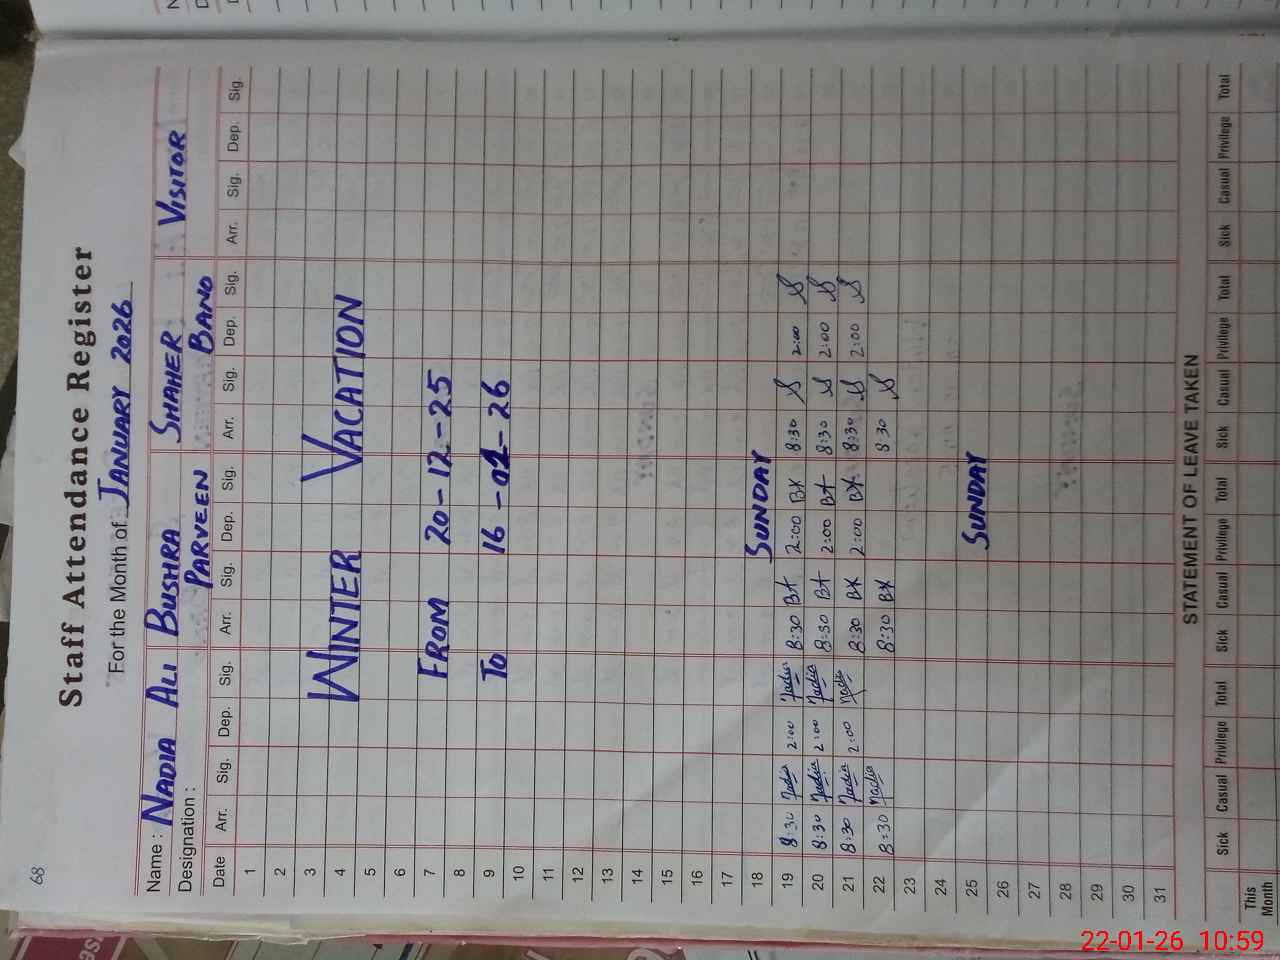 68
Staff Attendance Register
For the Month of JANUARY 2026
Name : NADIA ALI BUSHRA PARVEEN SHAHER BANO VISITOR
Designation :
Date Arr. Sig. Dep. Sig. Arr. Sig. Dep. Sig. Arr. Sig. Dep. Sig. Arr. Sig. Dep. Sig.
1
2
3
4 WINTER VACATION
5
6
7 FROM 20-12-25
8
9 TO 16-01-26
10
11
12
13
14
15
16
17
18 SUNDAY
19 8:30 Nadia 2:00 Nadia 8:30 BX 2:00 BX 8:30 2:00
20 8:30 Nadia 2:00 Nadia 8:30 BX 2:00 BX 8:30 2:00
21 8:30 Nadia 2:00 Nadia 8:30 BX 2:00 BX 8:30 2:00
22 8:30 Nadia 8:30 BX 8 30
23
24
25 SUNDAY
26
27
28
29
30
31
STATEMENT OF LEAVE TAKEN
Sick Casual Privilege Total Sick Casual Privilege Total Sick Casual Privilege Total Sick Casual Privilege Total
This
Month
22-01-26 10:59